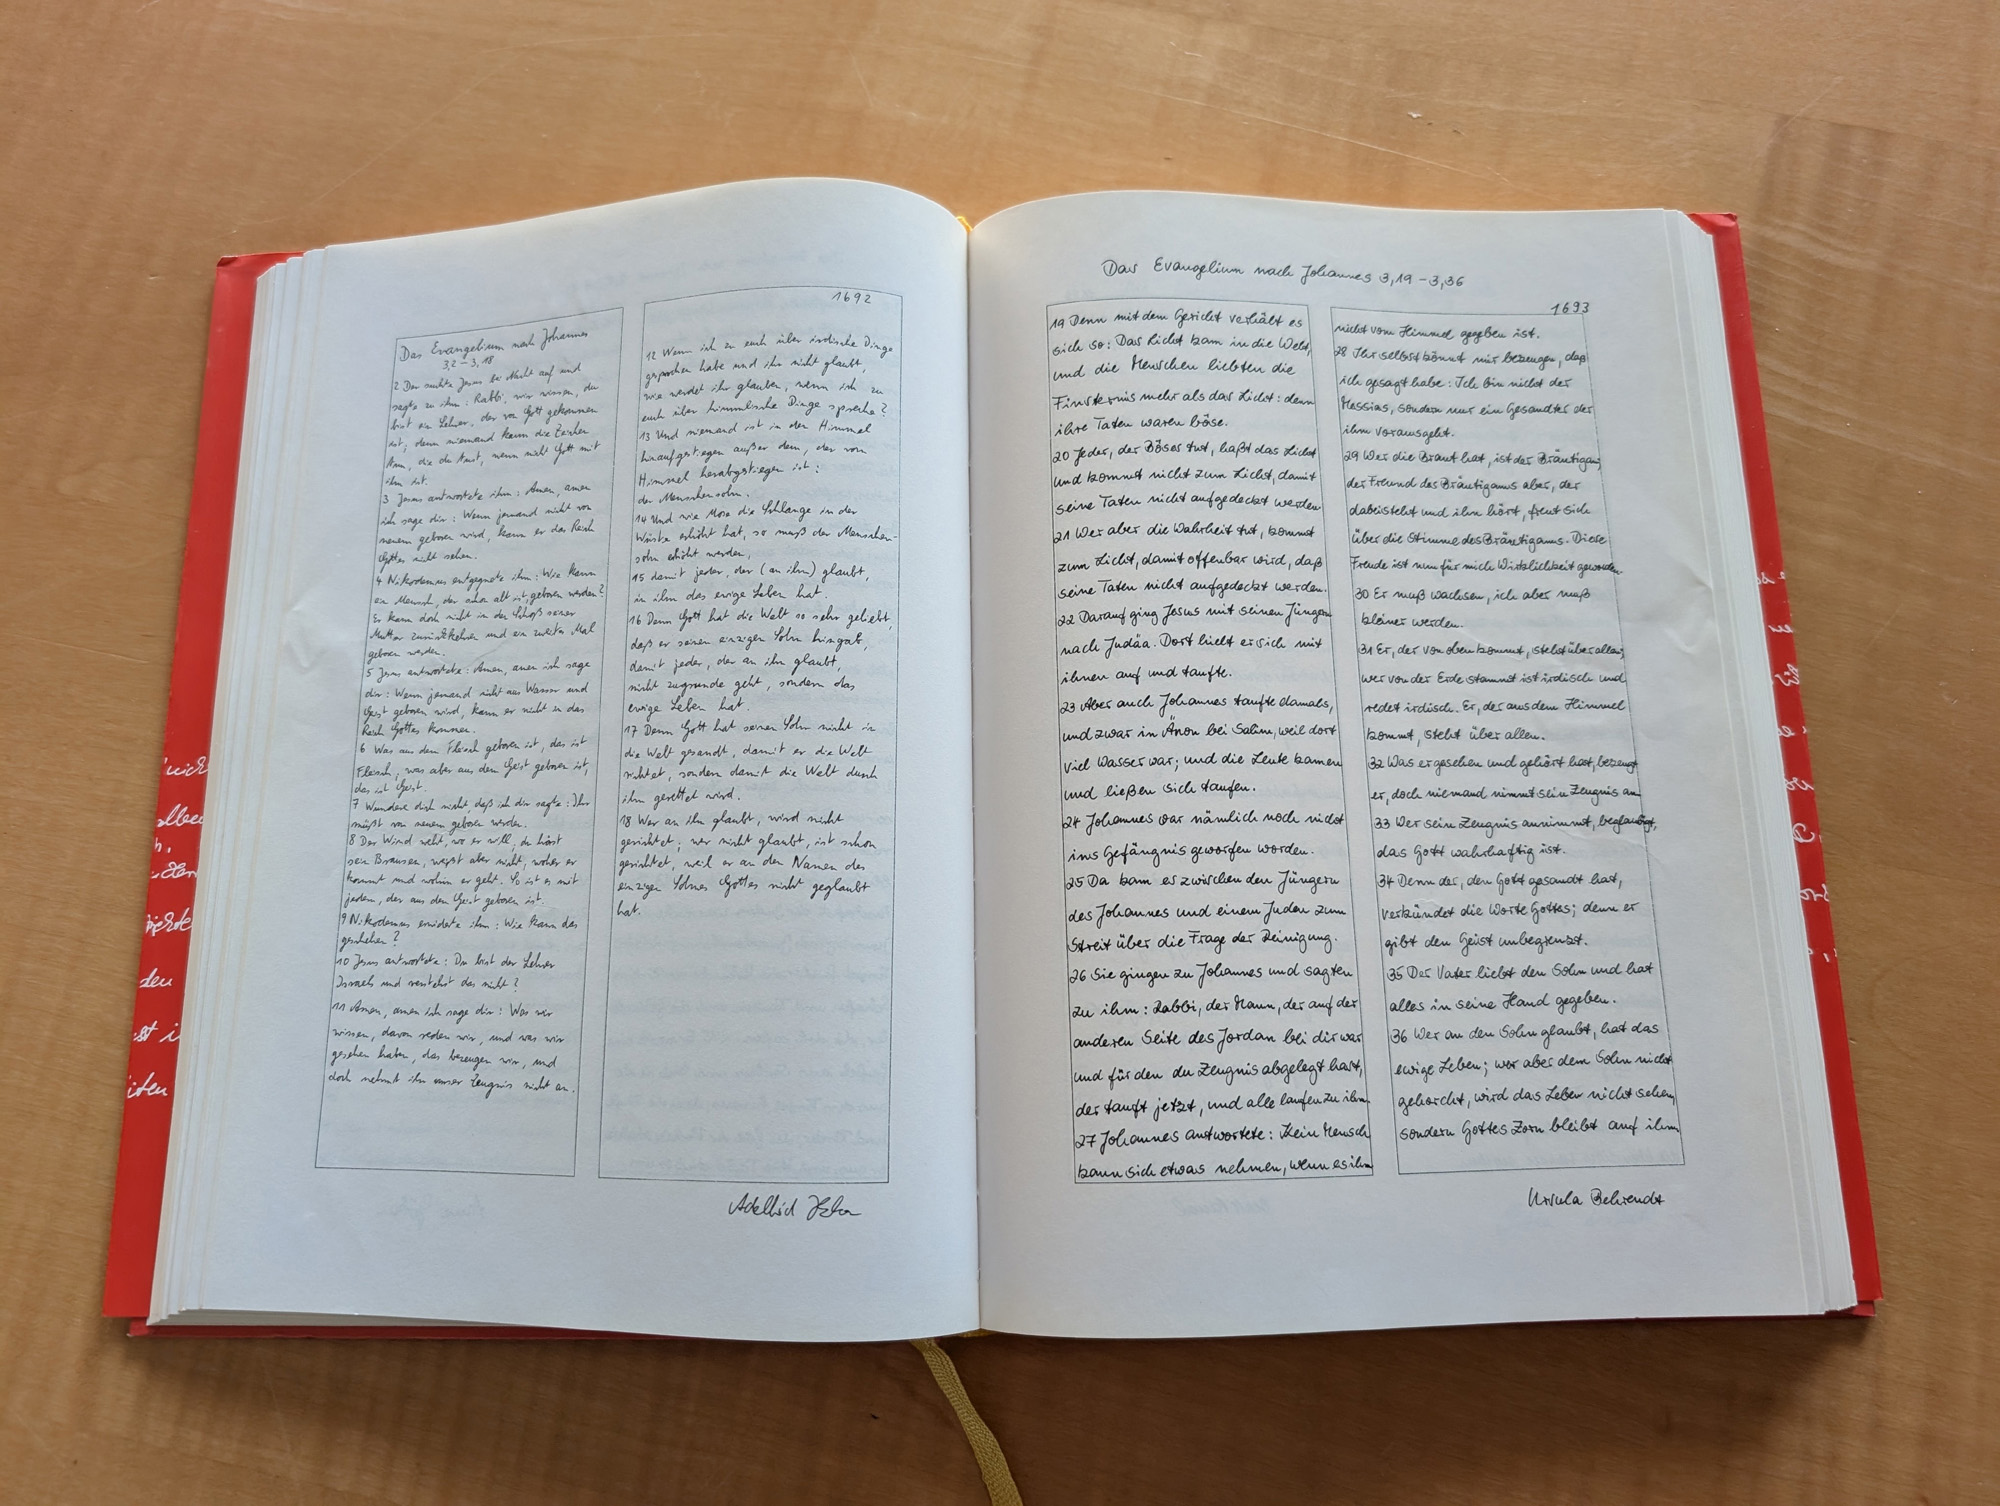 1692
Das Evangelium nach Johannes
3,2 – 3,18
2 Der suchte Jesus bei Nacht auf und
sagte zu ihm: Rabbi, wir wissen, du
bist ein Lehrer, der von Gott gekommen
ist, denn niemand kann die Zeichen
tun, die du tust, wenn nicht Gott mit
ihm ist.
3 Jesus antwortete ihm: Amen, amen
ich sage dir: Wenn jemand nicht von
neuem geboren wird, kann er das Reich
Gottes nicht sehen.
4 Nikodemus entgegnete ihm: Wie kann
ein Mensch, der schon alt ist, geboren werden?
Er kann doch nicht in den Schoß seiner
Mutter zurückkehren und ein zweites Mal
geboren werden.
5 Jesus antwortete: Amen, amen ich sage
dir: Wenn jemand nicht aus Wasser und
Geist geboren wird, kann er nicht in das
Reich Gottes kommen.
6 Was aus dem Fleisch geboren ist, das ist
Fleisch; was aber aus dem Geist geboren ist,
das ist Geist.
7 Wundere dich nicht daß ich dir sagte: Ihr
müßt von neuem geboren werden.
8 Der Wind weht, wo er will; du hörst
sein Brausen, weißt aber nicht, woher er
kommt und wohin er geht. So ist es mit
jedem, der aus dem Geist geboren ist.
9 Nikodemus erwiderte ihm: Wie kann das
geschehen?
10 Jesus antwortete: Du bist der Lehrer
Israels und verstehst das nicht?
11 Amen, amen ich sage dir: Was wir
wissen, davon reden wir, und was wir
gesehen haben, das bezeugen wir, und
doch nehmt ihr unser Zeugnis nicht an.
12 Wenn ich zu euch über irdische Dinge
gesprochen habe und ihr nicht glaubt,
wie werdet ihr glauben, wenn ich zu
euch über himmlische Dinge spreche?
13 Und niemand ist in den Himmel
hinaufgestiegen außer dem, der vom
Himmel herabgestiegen ist:
der Menschensohn.
14 Und wie Mose die Schlange in der
Wüste erhöht hat, so muß der Menschen-
sohn erhöht werden,
15 damit jeder, der (an ihn) glaubt,
in ihm das ewige Leben hat.
16 Denn Gott hat die Welt so sehr geliebt,
daß er seinen einzigen Sohn hingab,
damit jeder, der an ihn glaubt,
nicht zugrunde geht, sondern das
ewige Leben hat.
17 Denn Gott hat seinen Sohn nicht in
die Welt gesandt, damit er die Welt
richtet, sondern damit die Welt durch
ihn gerettet wird.
18 Wer an ihn glaubt, wird nicht
gerichtet; wer nicht glaubt, ist schon
gerichtet, weil er an den Namen des
einzigen Sohnes Gottes nicht geglaubt
hat.
Adelheid
Das Evangelium nach Johannes 3,19 – 3,36
1693
19 Denn mit dem Gericht verhält es
sich so: Das Licht kam in die Welt,
und die Menschen liebten die
Finsternis mehr als das Licht: denn
ihre Taten waren böse.
20 Jeder, der Böses tut, haßt das Licht
und kommt nicht zum Licht, damit
seine Taten nicht aufgedeckt werden
21 Wer aber die Wahrheit tut, kommt
zum Licht, damit offenbar wird, daß
seine Taten nicht aufgedeckt werden.
22 Darauf ging Jesus mit seinen Jüngern
nach Judäa. Dort hielt er sich mit
ihnen auf und taufte.
23 Aber auch Johannes taufte damals,
und zwar in Änon bei Salim, weil dort
viel Wasser war; und die Leute kamen
und ließen sich taufen.
24 Johannes war nämlich noch nicht
ins Gefängnis geworfen worden.
25 Da kam es zwischen den Jüngern
des Johannes und einem Juden zum
Streit über die Frage der Reinigung.
26 Sie gingen zu Johannes und sagten
zu ihm: Rabbi, der Mann, der auf der
anderen Seite des Jordan bei dir war
und für den du Zeugnis abgelegt hast,
der tauft jetzt, und alle laufen zu ihm.
27 Johannes antwortete: Kein Mensch
kann sich etwas nehmen, wenn es ihm
nicht vom Himmel gegeben ist.
28 Ihr selbst könnt mir bezeugen, daß
ich gesagt habe: Ich bin nicht der
Messias, sondern nur ein Gesandter der
ihm vorausgeht.
29 Wer die Braut hat, ist der Bräutigam;
der Freund des Bräutigams aber, der
dabeisteht und ihn hört, freut sich
über die Stimme des Bräutigams. Diese
Freude ist nun für mich Wirklichkeit geworden.
30 Er muß wachsen, ich aber muß
kleiner werden.
31 Er, der von oben kommt, steht über allen;
wer von der Erde stammt ist irdisch und
redet irdisch. Er, der aus dem Himmel
kommt, steht über allen.
32 Was er gesehen und gehört hat, bezeugt
er, doch niemand nimmt sein Zeugnis an
33 Wer sein Zeugnis annimmt, beglaubigt,
das Gott wahrhaftig ist.
34 Denn der, den Gott gesandt hat,
verkündet die Worte Gottes; denn er
gibt den Geist unbegrenzt.
35 Der Vater liebt den Sohn und hat
alles in seine Hand gegeben.
36 Wer an den Sohn glaubt, hat das
ewige Leben; wer aber dem Sohn nicht
gehorcht, wird das Leben nicht sehen,
sondern Gottes Zorn bleibt auf ihm
Ursula Behrendt